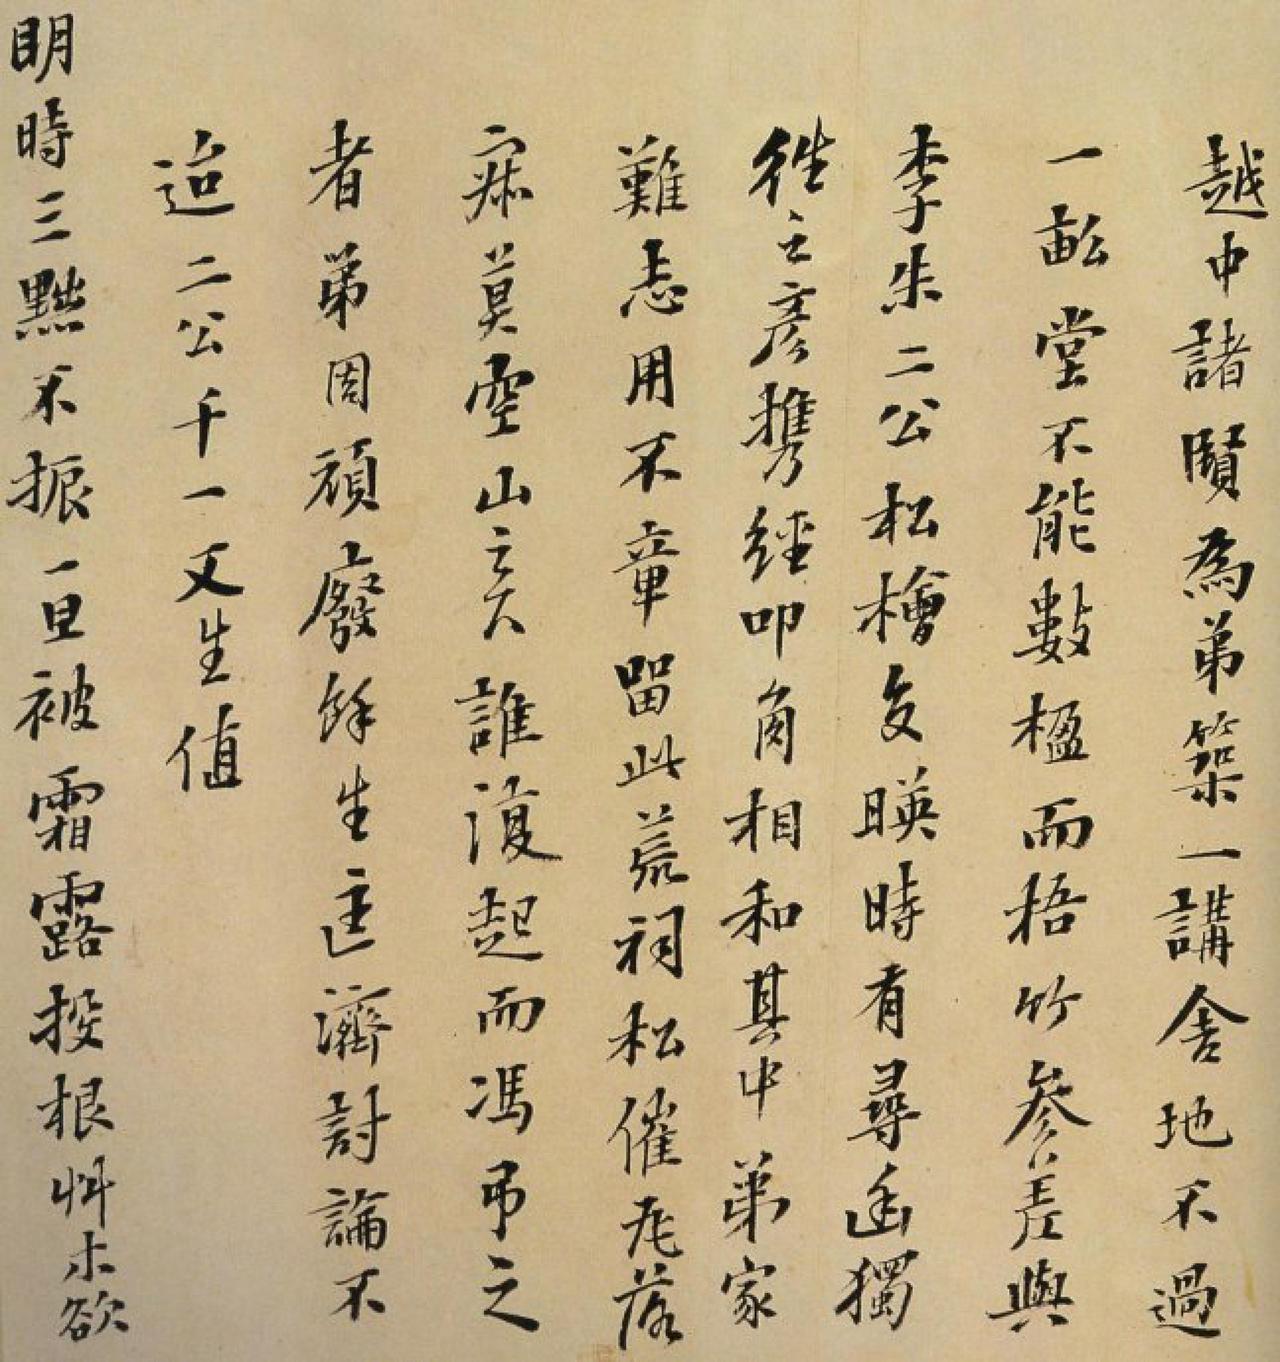 越中諸賢為弟築一講舍地不過
一畝堂不能數楹而梧竹參差與
李朱二公松檜交暎時有尋幽獨
往之彥攜經叩角相和其中弟家
難忘用不章留此荒祠松催瓦落
寂莫空山云亡誰復起而馮弔之
者弟固頑廢餘生匡濟討論不
迨二公千一又生值
明時三黜不振一旦被霜露投根艸木欲